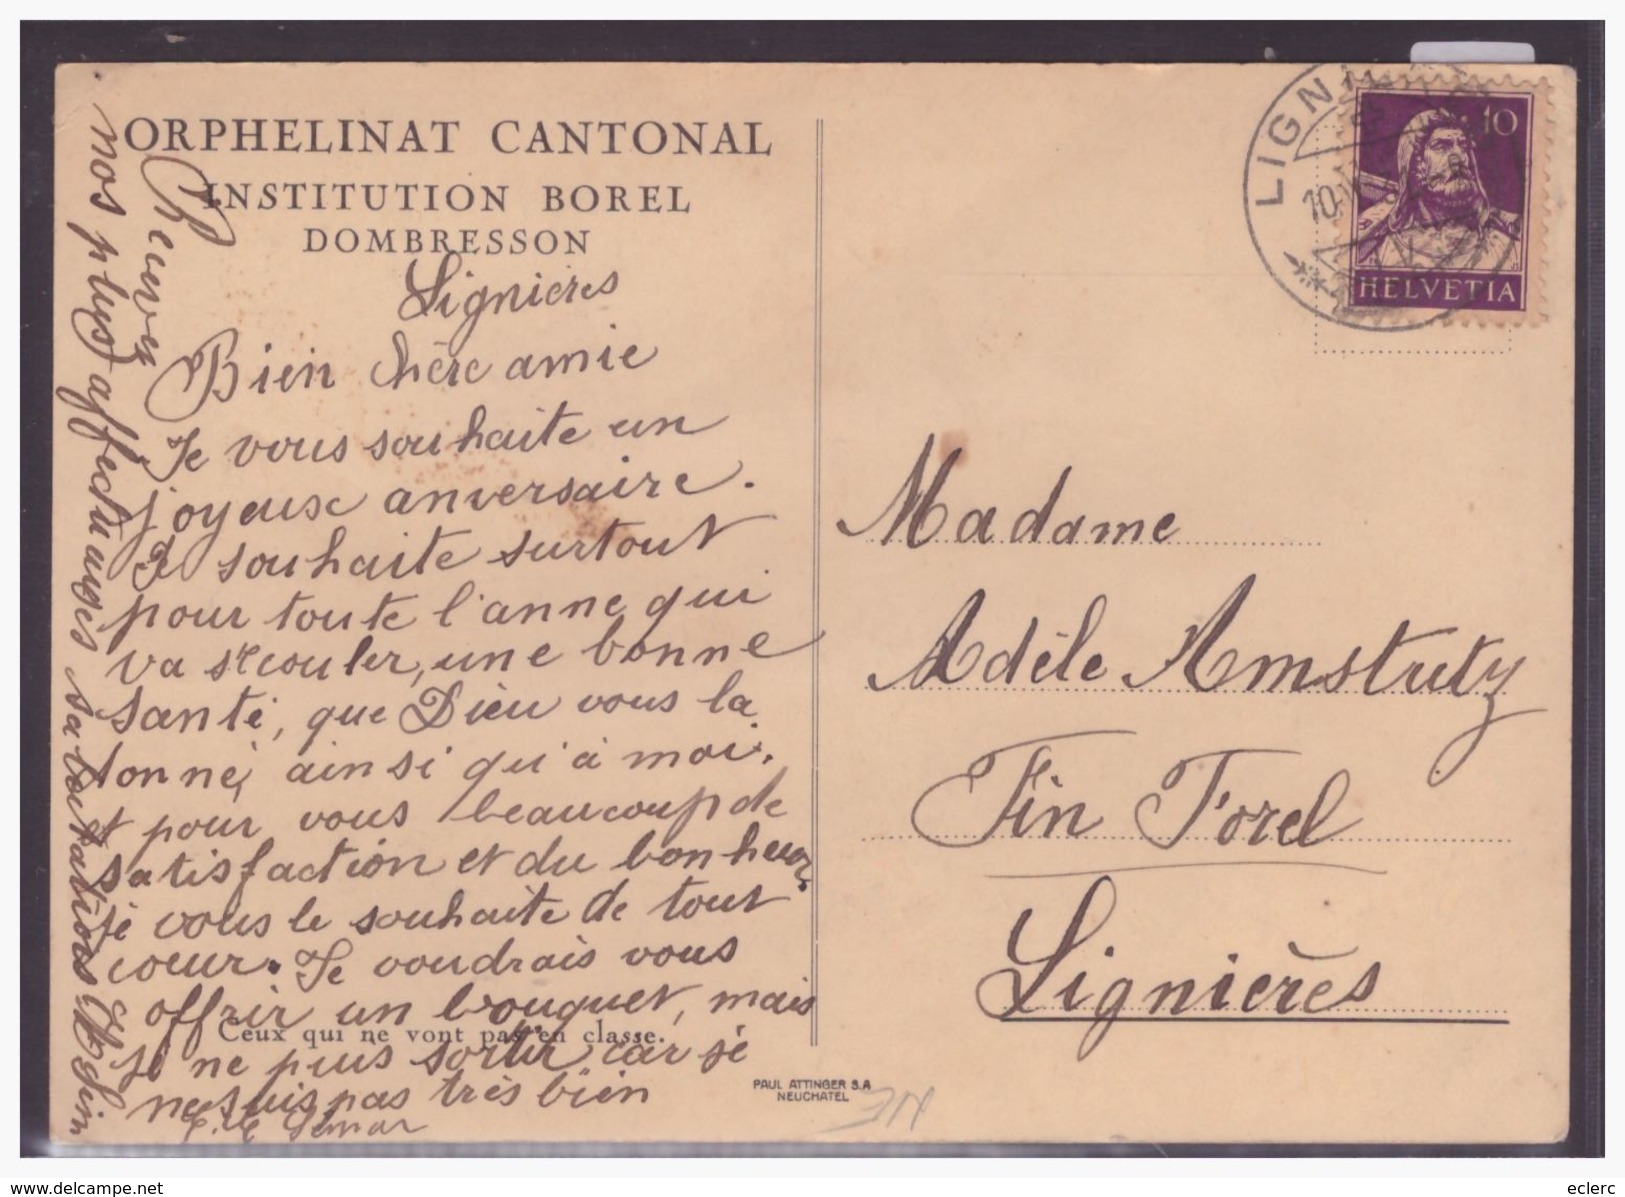 ORPHELINAT CANTONAL
INSTITUTION BOREL
DOMBRESSON
Lignières
Bien chère amie
Je vous souhaite un
joyeuse anversaire.
Je souhaite surtout
pour toute l'anne qui
va s'ecouler, une bonne
santé, que Dieu vous la
donne, ainsi qu'à moi,
et pour vous beaucoup de
satisfaction et du bonheur.
je vous le souhaite de tout
cœur. Je voudrais vous
offrir un bouquet, mais
Ceux qui ne vont pas en classe.
je ne puis sortir car je
ne suis pas très bien
Recevez
nos plus affectueuses salutations
PAUL ATTINGER S.A
NEUCHATEL
LIGNI
10
HELVETIA
Madame
Adèle Amstutz
Fin Forel
Lignières
www.delcampe.net
eclerc